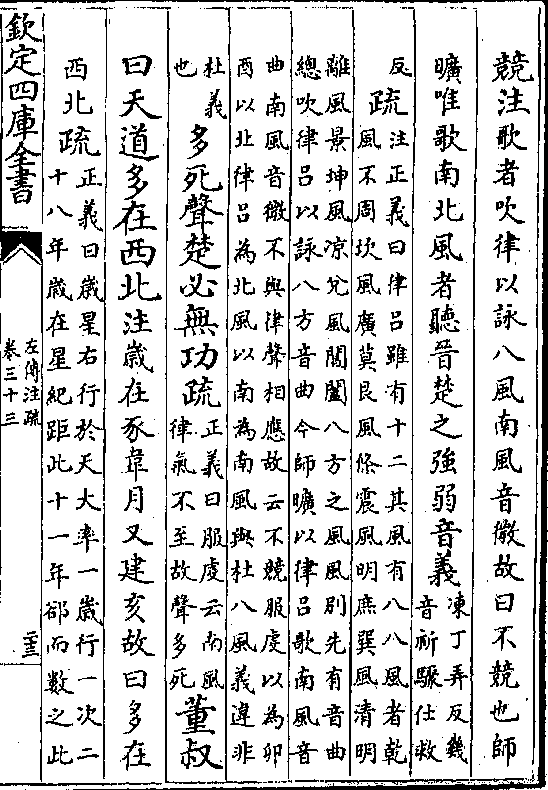 競注歌者吹律以詠八風南風音微故曰不競也師
曠唯歌南北風者聽晉楚之強弱音義
凍丁弄反幾
音祈驟仕救
反
疏
注正義曰律呂雖有十二其風有八八風者乾
風不周坎風廣莫艮風條震風明庶巽風清明
離風景坤風凉兌風閶闔八方之風風別先有音曲
總吹律呂以詠八方音曲今師曠以律呂歌南風音
曲南風音微不與律聲相應故云不競服虔以為卯
酉以北律呂為北風以南為南風與杜八風義違非
杜義
也
多死聲楚必無功疏
正義曰服虔云南風
律氣不至故聲多死
董叔
曰天道多在西北注歲在豕韋月又建亥故曰多在
西北疏
正義曰歲星右行於天大率一歲行一次二
十八年歲在星紀距此十一年郤而數之此
欽定四庫全書
左傳注疏
卷三十三